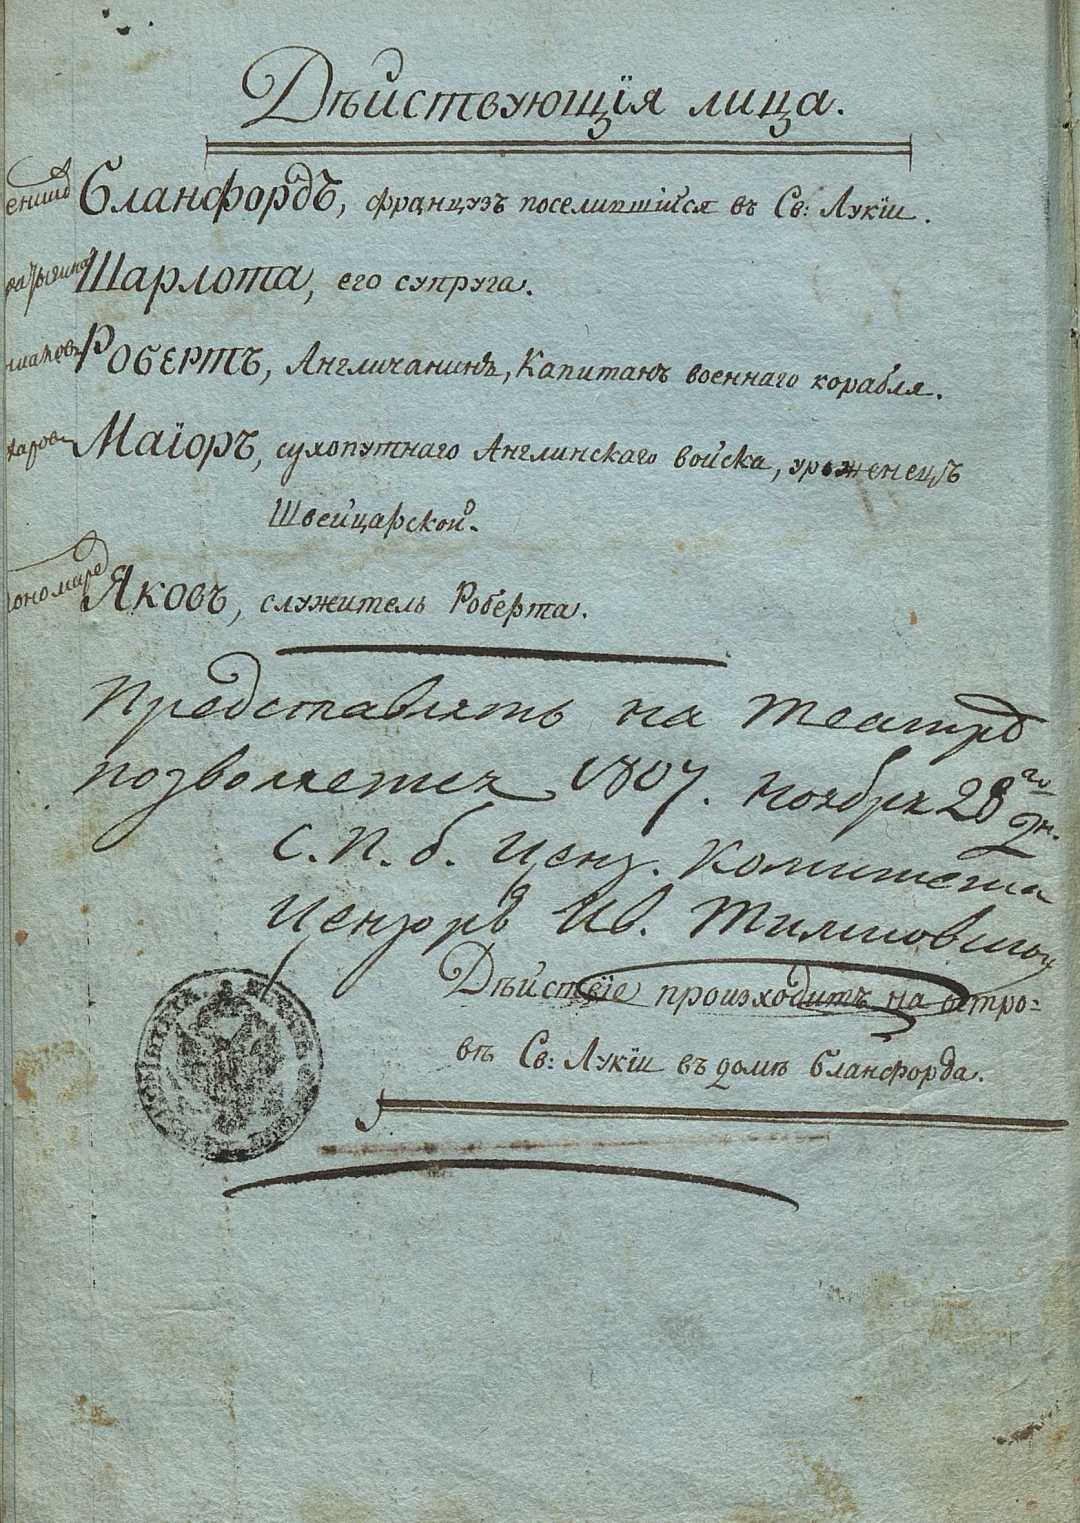 Дѣйствующія лица.
Бланфордъ, французъ поселившійся въ Св: Лукіи.
Шарлота, его супруга.
Робертъ, Англичанинъ, Капитанъ военнаго корабля.
Маіоръ, сухопутнаго Англинскаго войска, уроженецъ
Швейцарской.
Пономаре Яковъ, служитель Роберта.
Представлять на театрѣ
позволяется 1807. ноября 28го дн.
С. П. б. Ценз. Комитета
Цензоръ Ив. Тимковскій
Дѣйствіе произходитъ на остро-
вѣ Св: Лукіи въ домѣ бланфорда.